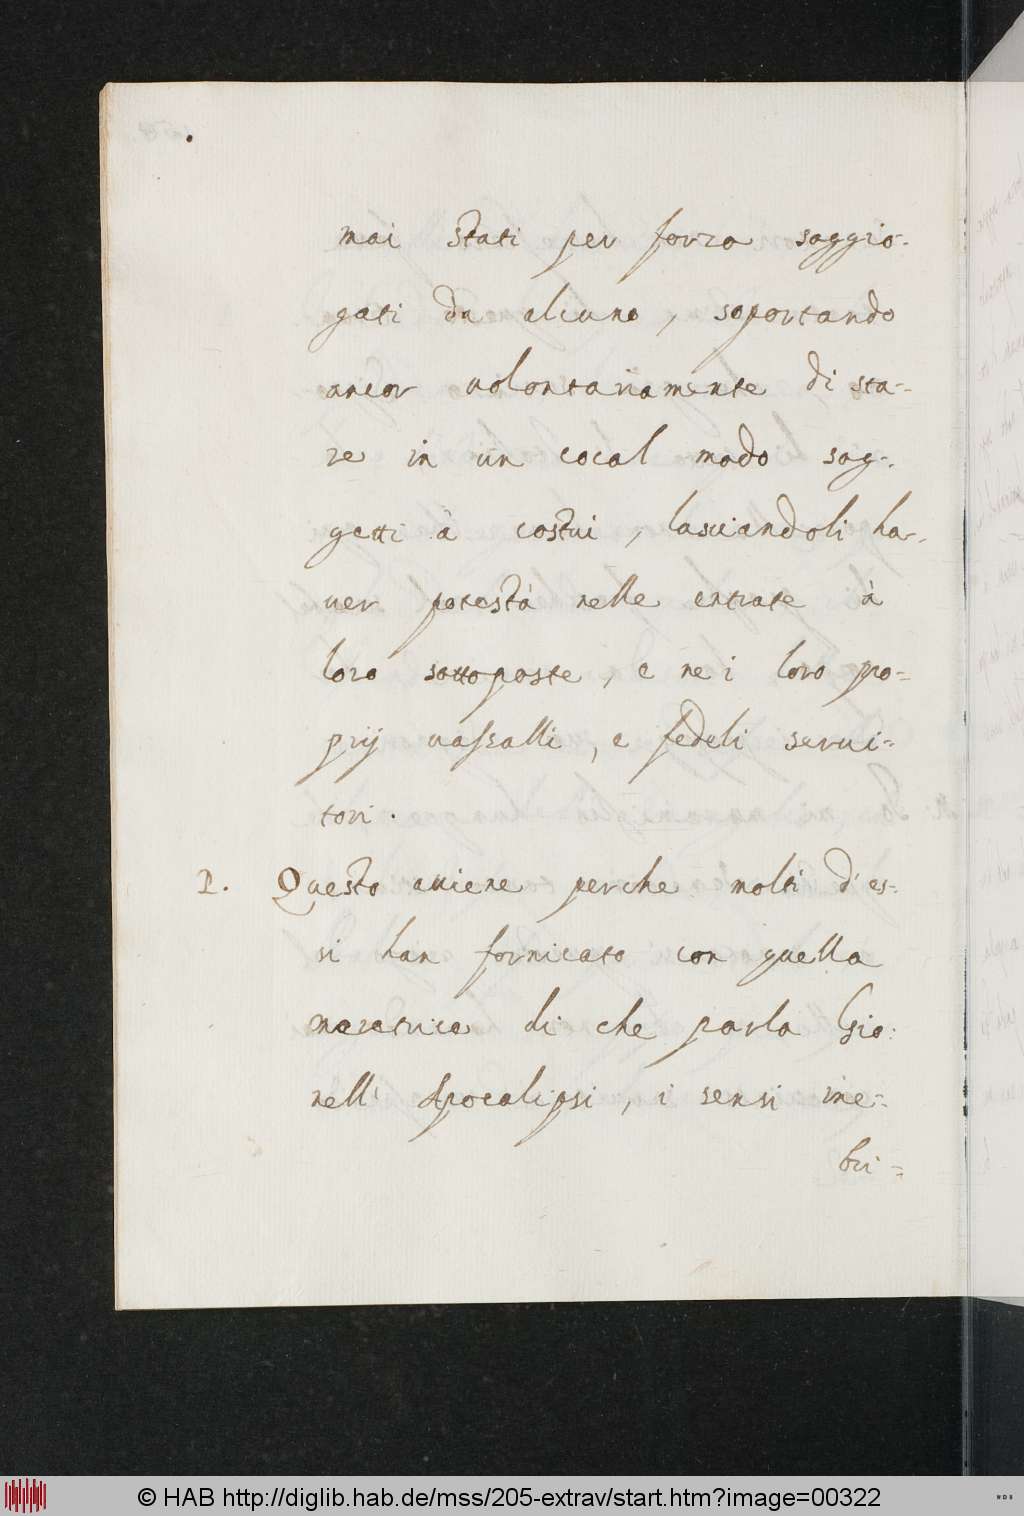 mai stati per forza soggio-
gati da alcuno, soportando
ancor uolontariamente di sta-
re in un cocal modo sog-
getti à costui, lasciandoli ha-
uer potestà nelle entrate à
loro sottoposte, e ne i loro pro-
prij uassalli, e fedeli serui-
tori.
P. Questo auiene perche molti d'es-
si han fornicato con quella
meretrice di che parla Gio:
nell' Apocalipsi, i sensi ine-
bri-
© HAB http://diglib.hab.de/mss/205-extrav/start.htm?image=00322